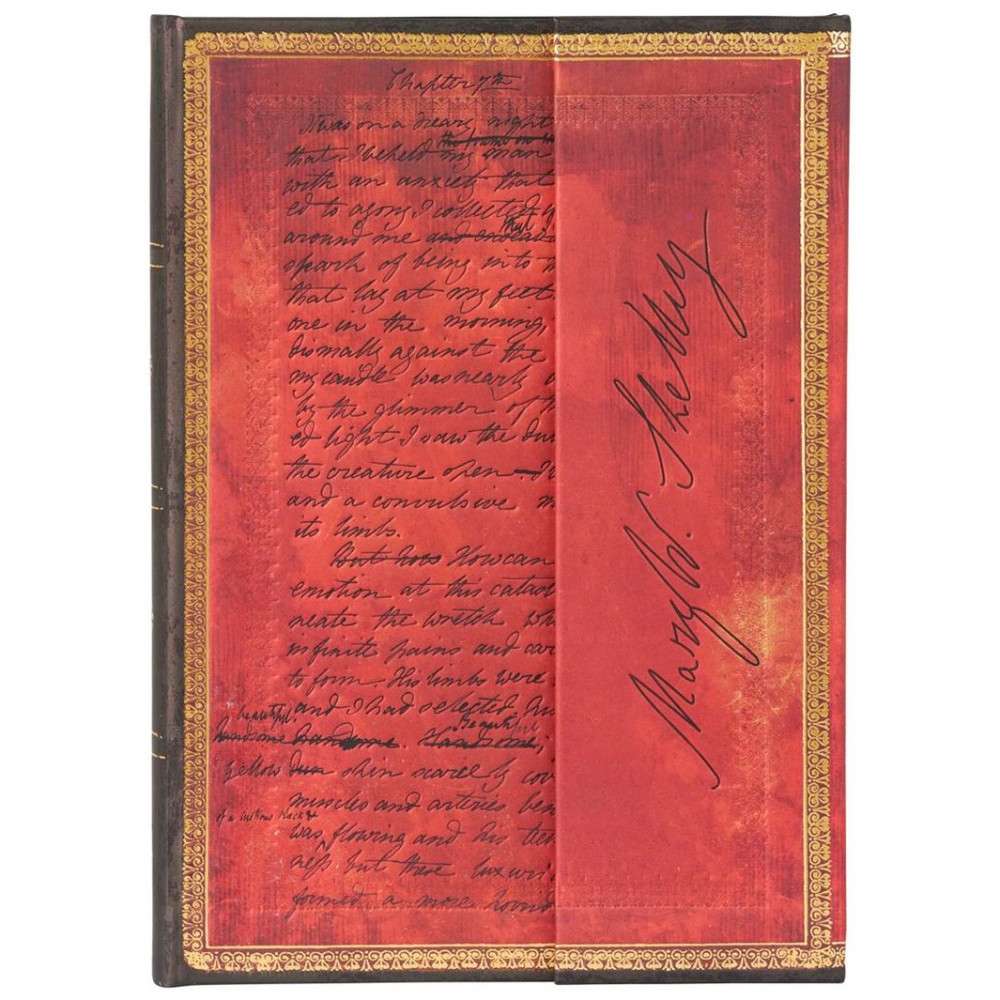 Chapter 7th
It was on a dreary night
the frame on
that I beheld my man
with an anxiety that
ed to agony I collected
that
around me and endeav
spark of being into
that lay at my feet.
one in the morning,
dismally against the
my candle was nearly
by the glimmer of
ed light I saw the du
the creature open
and a convulsive m
its limbs.
But how How can
emotion at this catast
neate the wretch wh
infinite pains and car
to form. His limbs were
and I had selected
beautiful. Beautiful
handsome handsome. Handsome;
yellow dun skin scarcely cov
muscles and arteries ben
of a lustrous black &
was flowing and his tee
ness but these luxuri
formed a more horrid
Mary W. Shelley